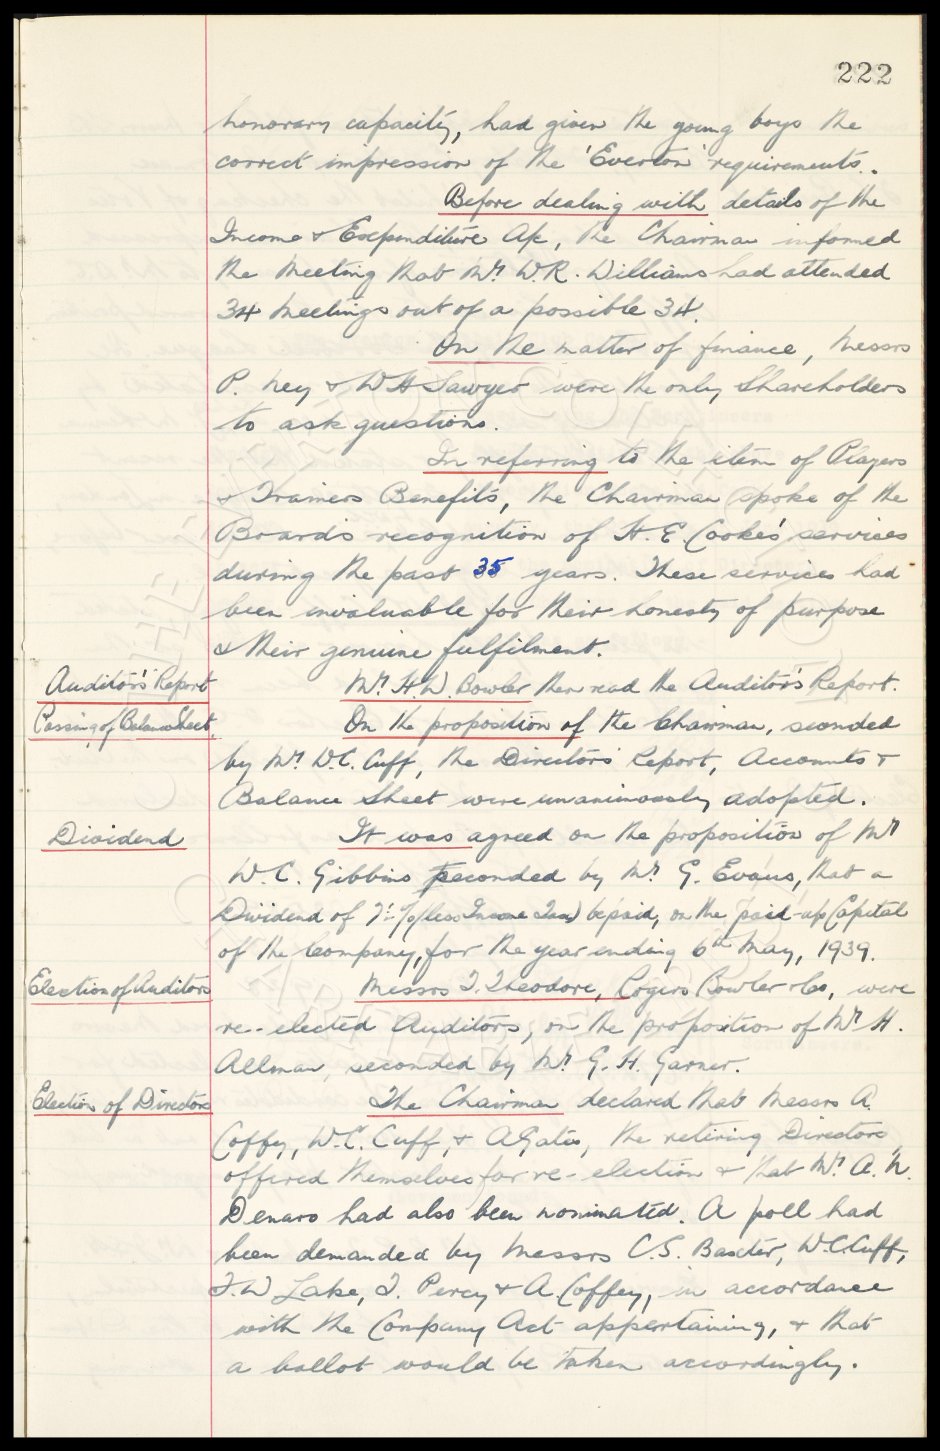 222
honorary capacity, had given the young boys the
correct impression of the 'Everton' requirements.
Before dealing with details of the
Income & Expenditure A/c, the Chairman informed
the meeting that Mr W.R. Williams had attended
34 meetings out of a possible 34.
On the matter of finance, Messrs
P. Ney & W H Sawyer were the only Shareholders
to ask questions.
In referring to the item of Players
& Trainers Benefits, the Chairman spoke of the
Board's recognition of H.E. Cooke's services
during the past 35 years. These services had
been invaluable for their honesty of purpose
& their genuine fulfilment.
Auditor's Report Mr H.W. Bowler then read the Auditor's Report.
Passing of Balance Sheet. On the proposition of the Chairman, seconded
by Mr W.C. Cuff, the Director's Report, Accounts &
Balance Sheet were unanimously adopted.
Dividend It was agreed on the proposition of Mr
W.C. Gibbins seconded by Mr G. Evans, that a
Dividend of (less Income Tax) be paid, on the paid-up Capital
of the Company, for the year ending 6th May, 1939.
Election of Auditors Messrs T. Theodore, Rogers Bowler & Co, were
re-elected Auditors, on the proposition of Mr H.
Allman, seconded by Mr G.H. Garner.
Election of Directors The Chairman declared that Messrs A.
Coffey, W.C. Cuff, & A Gates, the retiring Directors,
offered themselves for re-election & that Mr A.N.
Denaro had also been nominated. A poll had
been demanded by Messrs C.S. Baxter, W.C. Cuff,
F.W Lake, T. Percy & A. Coffey, in accordance
with the Company Act appertaining, & that
a ballot would be taken accordingly.